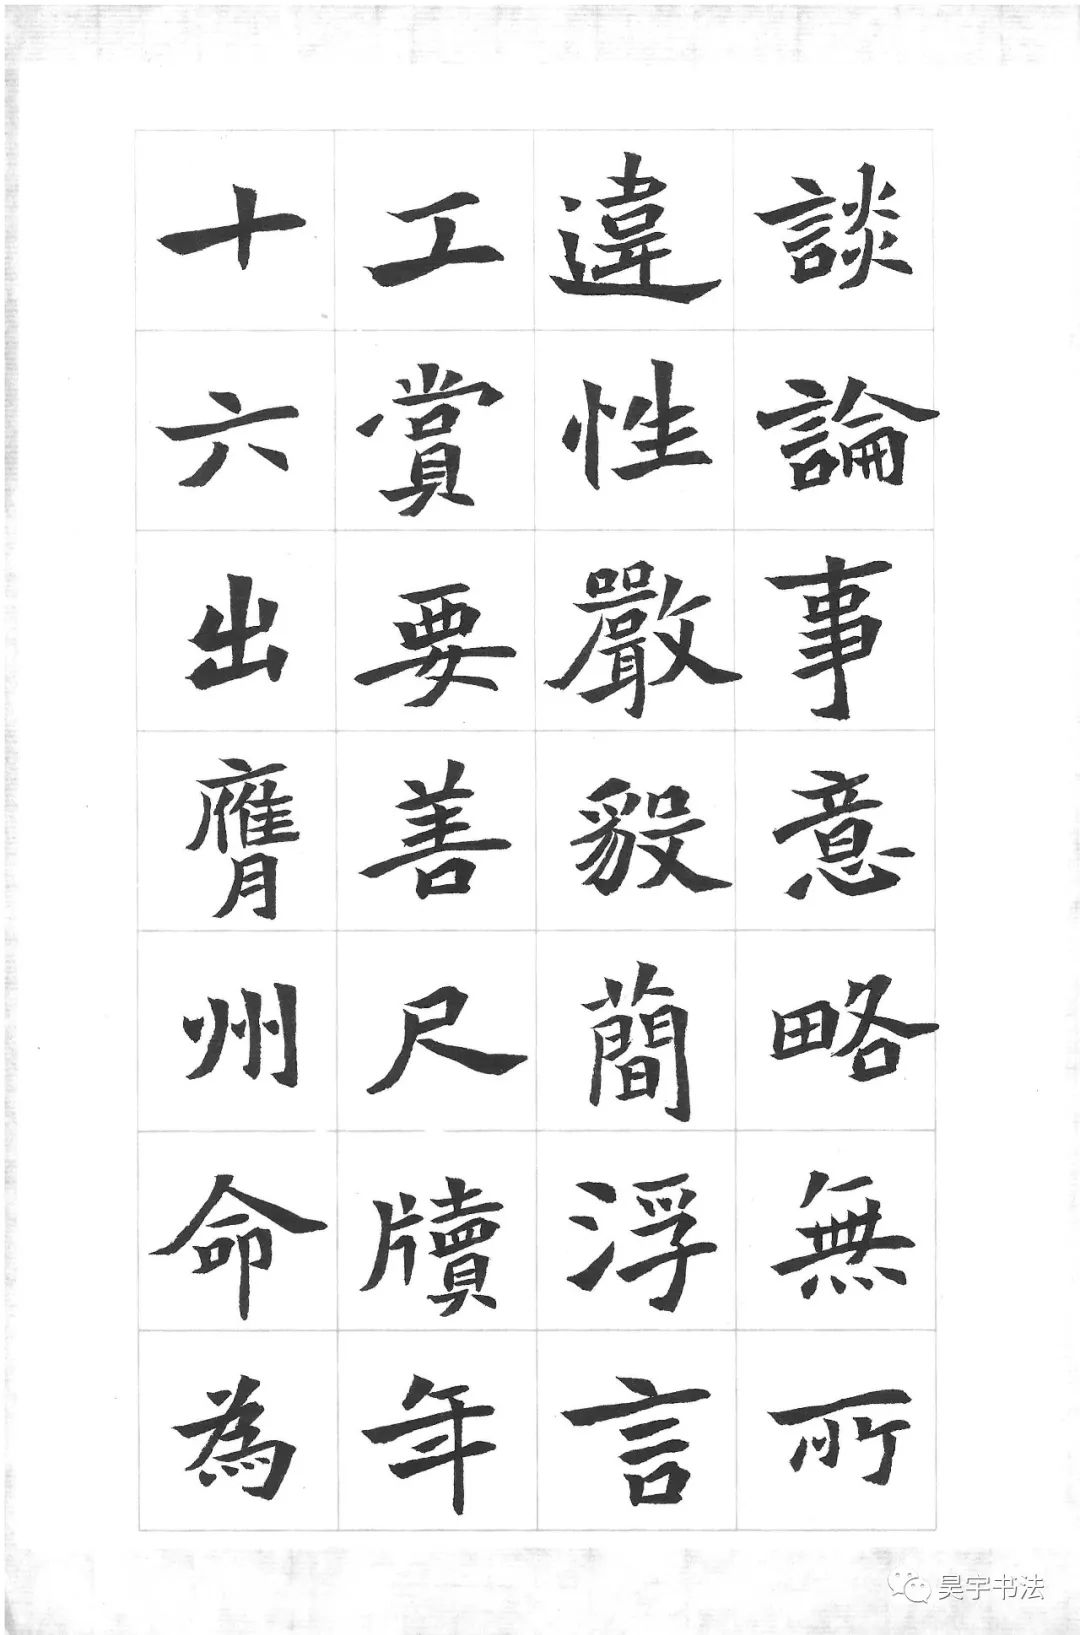 談論事意略無所
違性嚴毅簡浮言
工賞要善尺牘年
十六出膺州命為
昊宇书法